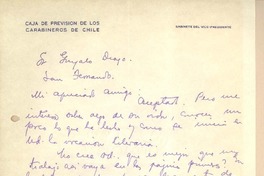 CAJA DE PREVISION DE LOS
CARABINEROS DE CHILE
GABINETE DEL VICE-PRESIDENTE
Sr Gonzalo Drago.
San Fernando.
Mi apreciado amigo. Aceptas. Pero me
interesa saber algo de su vida, conocer un
poco lo que ha leido y como se inició en
Ud. la vocación literaria.
que es mejor que un
trabajo así vaya en las páginas